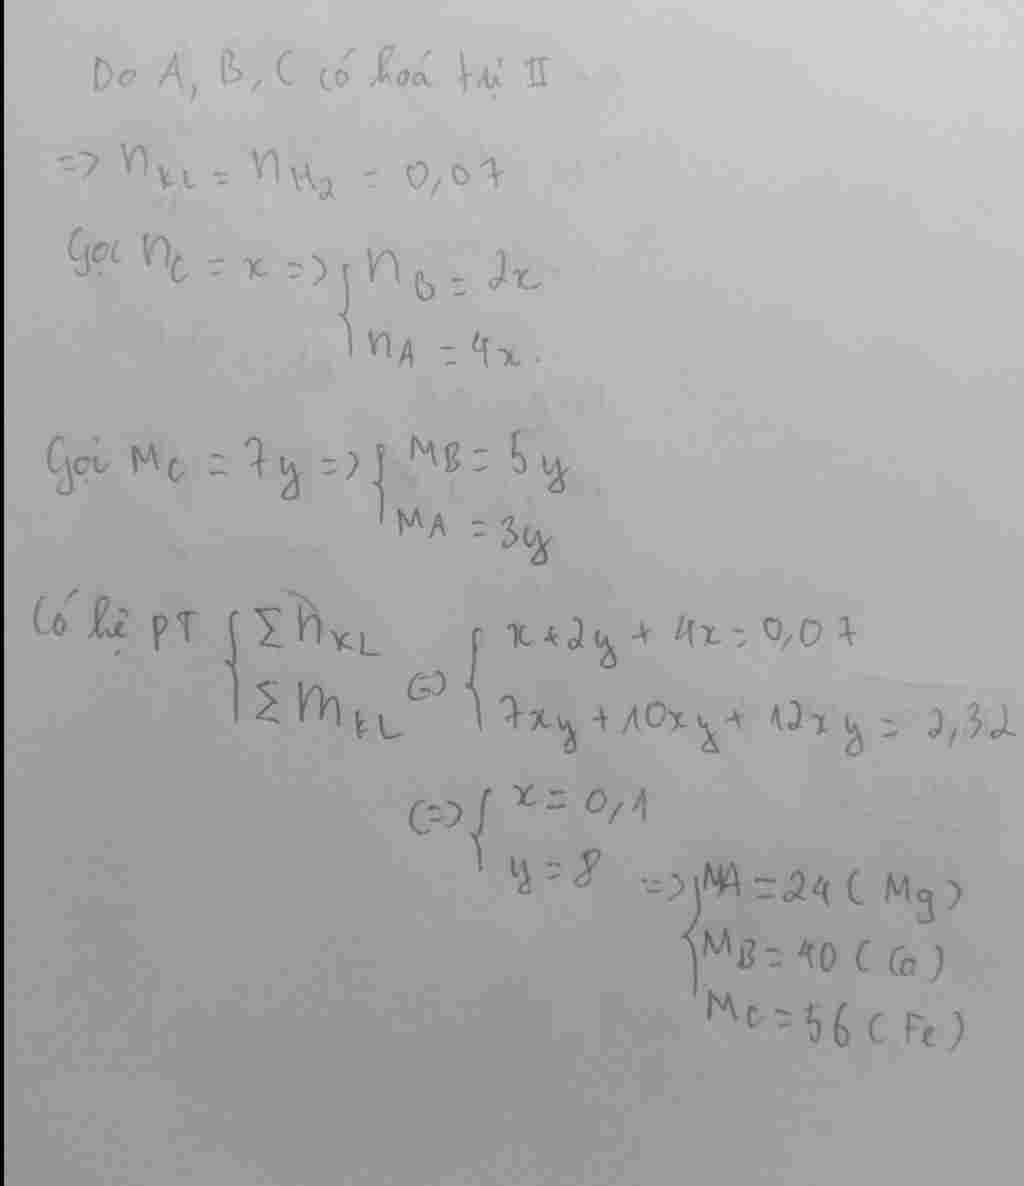 Do A, B, C có hoá trị II
=> nKL = nH2 = 0,07
Gọi nC = x => { nB = 2x
nA = 4x.
Gọi MC = 7y => { MB = 5y
MA = 3y
Có hệ PT { Σ nKL <=> { x + 2y + 4x = 0,07
Σ mKL 7xy + 10xy + 12xy = 2,32
(=> { x = 0,1
y = 8 => { MA = 24 ( Mg )
MB = 40 ( Ca )
MC = 56 ( Fe )